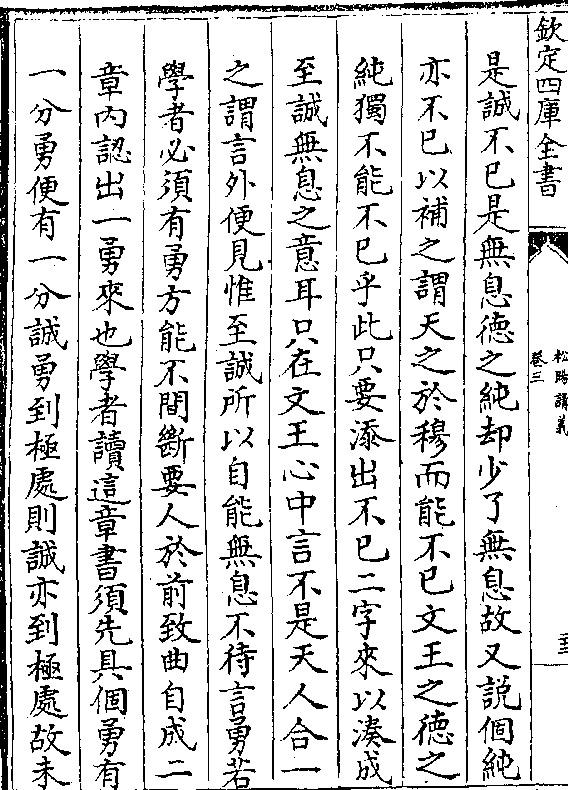 欽定四庫全書
松陽講義
卷三
是誠不已是無息德之純却少了無息故又説個純
亦不已以補之謂天之於穆而能不已文王之德之
純獨不能不已乎此只要添出不已二字來以湊成
至誠無息之意耳只在文王心中言不是天人合一
之謂言外便見惟至誠所以自能無息不待言勇若
學者必須有勇方能不間斷要人於前致曲自成二
章内認出一勇來也學者讀這章書須先具個勇有
一分勇便有一分誠勇到極處則誠亦到極處故未